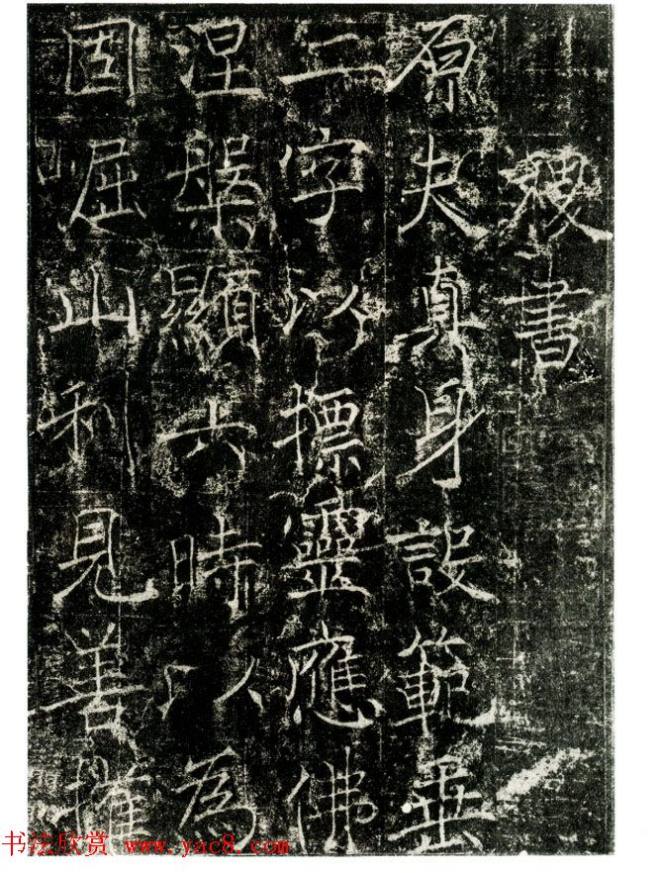 稷書
原夫真身設範垂
二字以摽靈應佛
涅槃顯六時以為
固崛山利見善權
书法欣赏 www.yac8.com